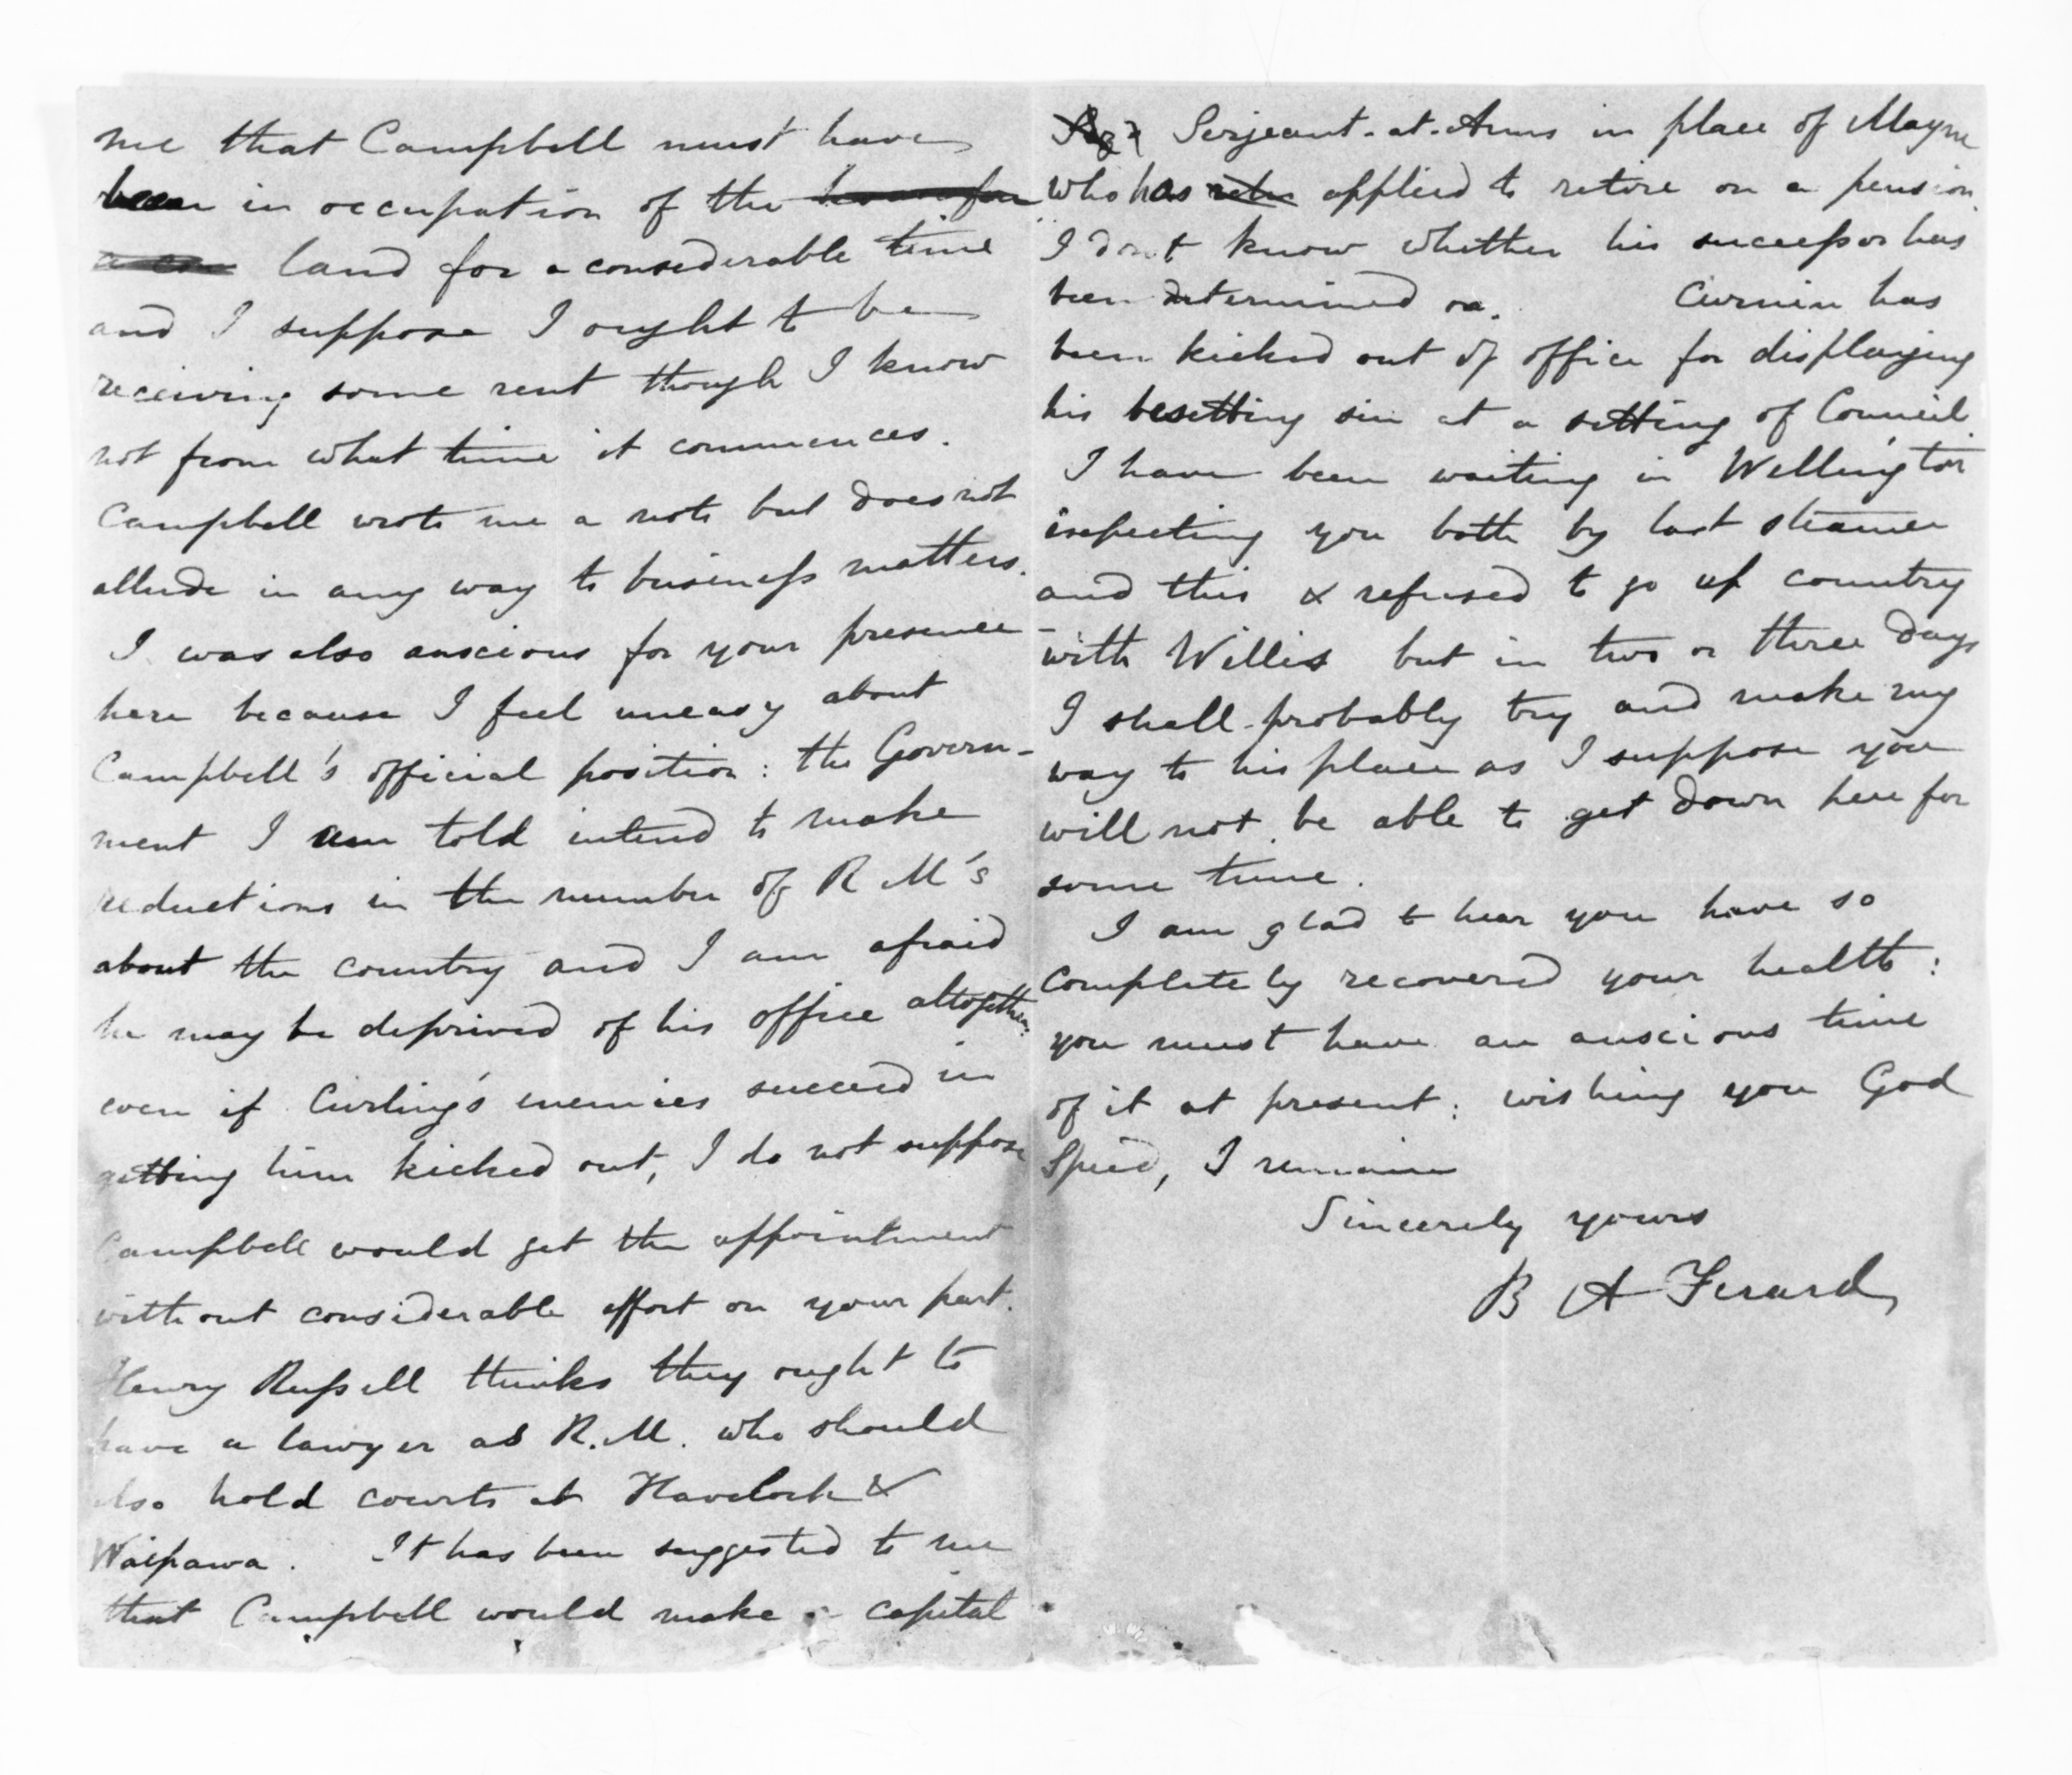 me that Campbell must have
been in occupation of the
land for a considerable time
and I suppose I ought to be
receiving some rent though I know
not from what time it commences.
Campbell wrote me a note but does not
allude in any way to business matters.
I was also anscious for your presence
here because I feel uneasy about
Campbell's official position: the Govern-
ment I am told intend to make
reductions in the number of R M's
about the country and I am afraid
he may be deprived of his office altogether:
even if Curling's enemies succeed in
getting him kicked out, I do not suppose
Campbell would get the appointment
without considerable effort on your part.
Henry Russell thinks they ought to
have a lawyer as R.M. who should
also hold courts at Havelock &
Waipawa. It has been suggested to me
that Campbell would make a capital
Serjeant-at-Arms in place of Mayne
who has applied to retire on a pension.
I don't know whether his successor has
been determined on. Curnin has
been kicked out of office for displaying
his besetting sin at a sitting of Council.
I have been waiting in Wellington
expecting you both by last steamer
and this & refused to go up country
with Willis but in two or three days
I shall probably try and make my
way to his place as I suppose you
will not be able to get down here for
some time.
I am glad to hear you have so
completely recovered your health:
you must have an anscious time
of it at present: wishing you God
Speed, I remain
Sincerely yours
B A Ferard